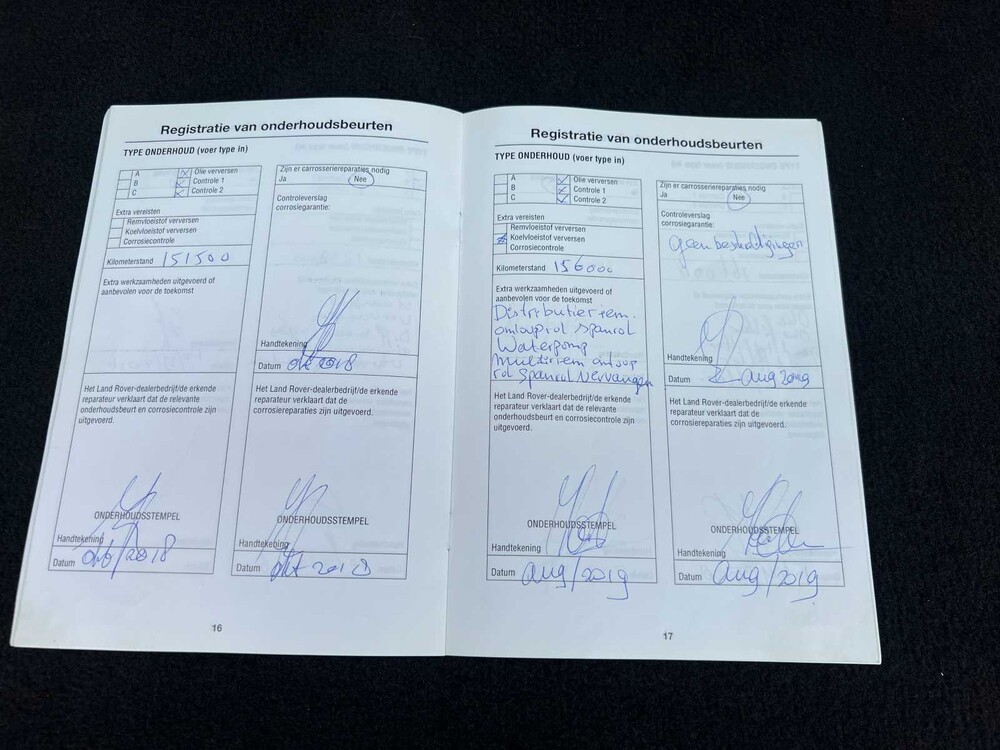 Registratie van onderhoudsbeurten
TYPE ONDERHOUD (voer type in)
A
B
C
Olie verversen
Controle 1
Controle 2
Extra vereisten
Remvloeistof verversen
Koelvloeistof verversen
Corrosiecontrole
Kilometerstand 151500
Extra werkzaamheden uitgevoerd of
aanbevolen voor de toekomst
Het Land Rover-dealerbedrijf/de erkende
reparateur verklaart dat de relevante
onderhoudsbeurt en corrosiecontrole zijn
uitgevoerd.
ONDERHOUDSSTEMPEL
Handtekening
Datum okt/2018
Zijn er carrosseriereparaties nodig
Ja Nee
Controleverslag
corrosiegarantie:
Handtekening
Datum okt 2018
Het Land Rover-dealerbedrijf/de erkende
reparateur verklaart dat de
corrosiereparaties zijn uitgevoerd.
ONDERHOUDSSTEMPEL
Handtekening
Datum okt 2018
16
Registratie van onderhoudsbeurten
TYPE ONDERHOUD (voer type in)
A
B
C
Olie verversen
Controle 1
Controle 2
Extra vereisten
Remvloeistof verversen
Koelvloeistof verversen
Corrosiecontrole
Kilometerstand 156000
Extra werkzaamheden uitgevoerd of
aanbevolen voor de toekomst
Distributieriem.
omlooprol spanrol
Waterpomp
multiriem omloop
rol spanrol Vervangen
Het Land Rover-dealerbedrijf/de erkende
reparateur verklaart dat de relevante
onderhoudsbeurt en corrosiecontrole zijn
uitgevoerd.
ONDERHOUDSSTEMPEL
Handtekening
Datum aug/2019
Zijn er carrosseriereparaties nodig
Ja Nee
Controleverslag
corrosiegarantie:
geen beschadigingen
Handtekening
Datum aug 2019
Het Land Rover-dealerbedrijf/de erkende
reparateur verklaart dat de
corrosiereparaties zijn uitgevoerd.
ONDERHOUDSSTEMPEL
Handtekening
Datum aug/2019
17